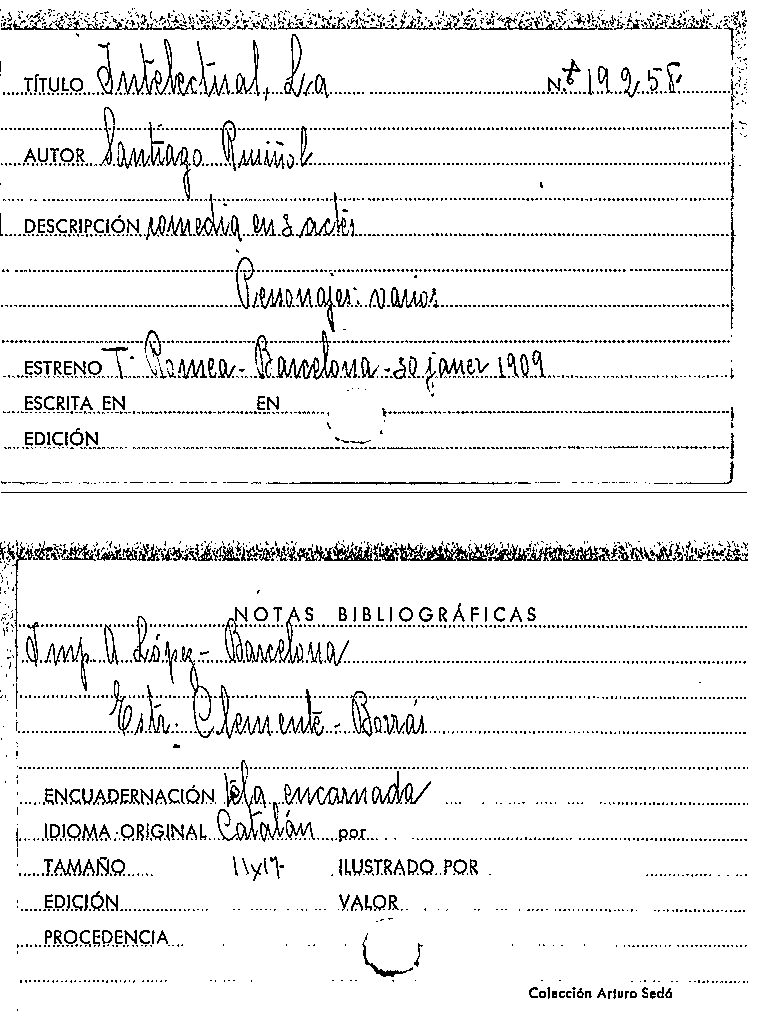 TÍTULO Intelectual, La N.º 19258
AUTOR Santiago Rusiñol
DESCRIPCIÓN comedia en 3 actes
Personajes: varios
ESTRENO T. Romea - Barcelona - 30 janer 1909
ESCRITA EN EN
EDICIÓN
NOTAS BIBLIOGRÁFICAS
Imp A López - Barcelona
Estr. Clemente - Borrás
ENCUADERNACIÓN tela encarnada
IDIOMA ORIGINAL Catalán por
TAMAÑO 11x17 ILUSTRADO POR
EDICIÓN VALOR
PROCEDENCIA
Colección Arturo Sedó